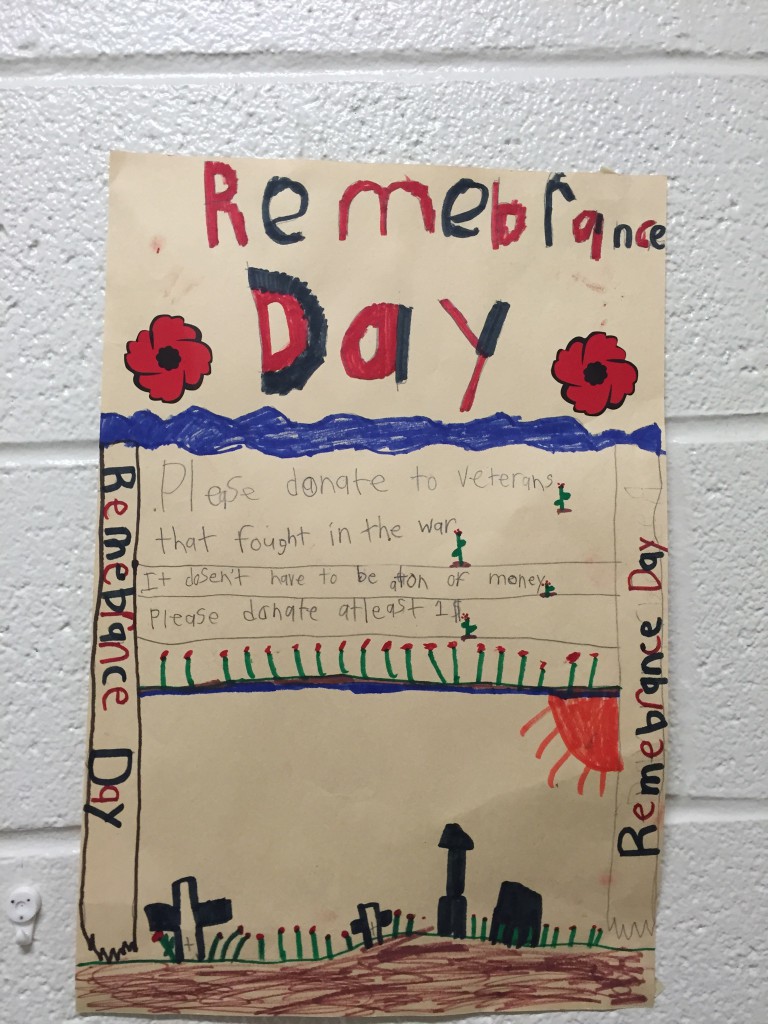 Remebrance
Day
Please donate to veterans
that fought in the war
It dosen't have to be aton of money
Please donate atleast 1$
Remebrance Day
Remebrance Day